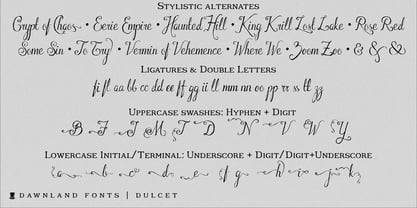 Stylistic alternates
Crypt of Chaos • Eerie Empire • Haunted Hill • King Krill Lost Lake • Rose Red
Some Sin • To Try • Vermin of Vehemence • Where We • Zoom Zoo • & & &
Ligatures & Double Letters
fi fl aa bb cc dd ee ff gg ii ll mm nn oo pp rr ss tt zz
Uppercase swashes: Hyphen + Digit
B F J M T D N V W Y
Lowercase Initial/Terminal: Underscore + Digit/Digit+Underscore
DAWNLAND FONTS | DULCET